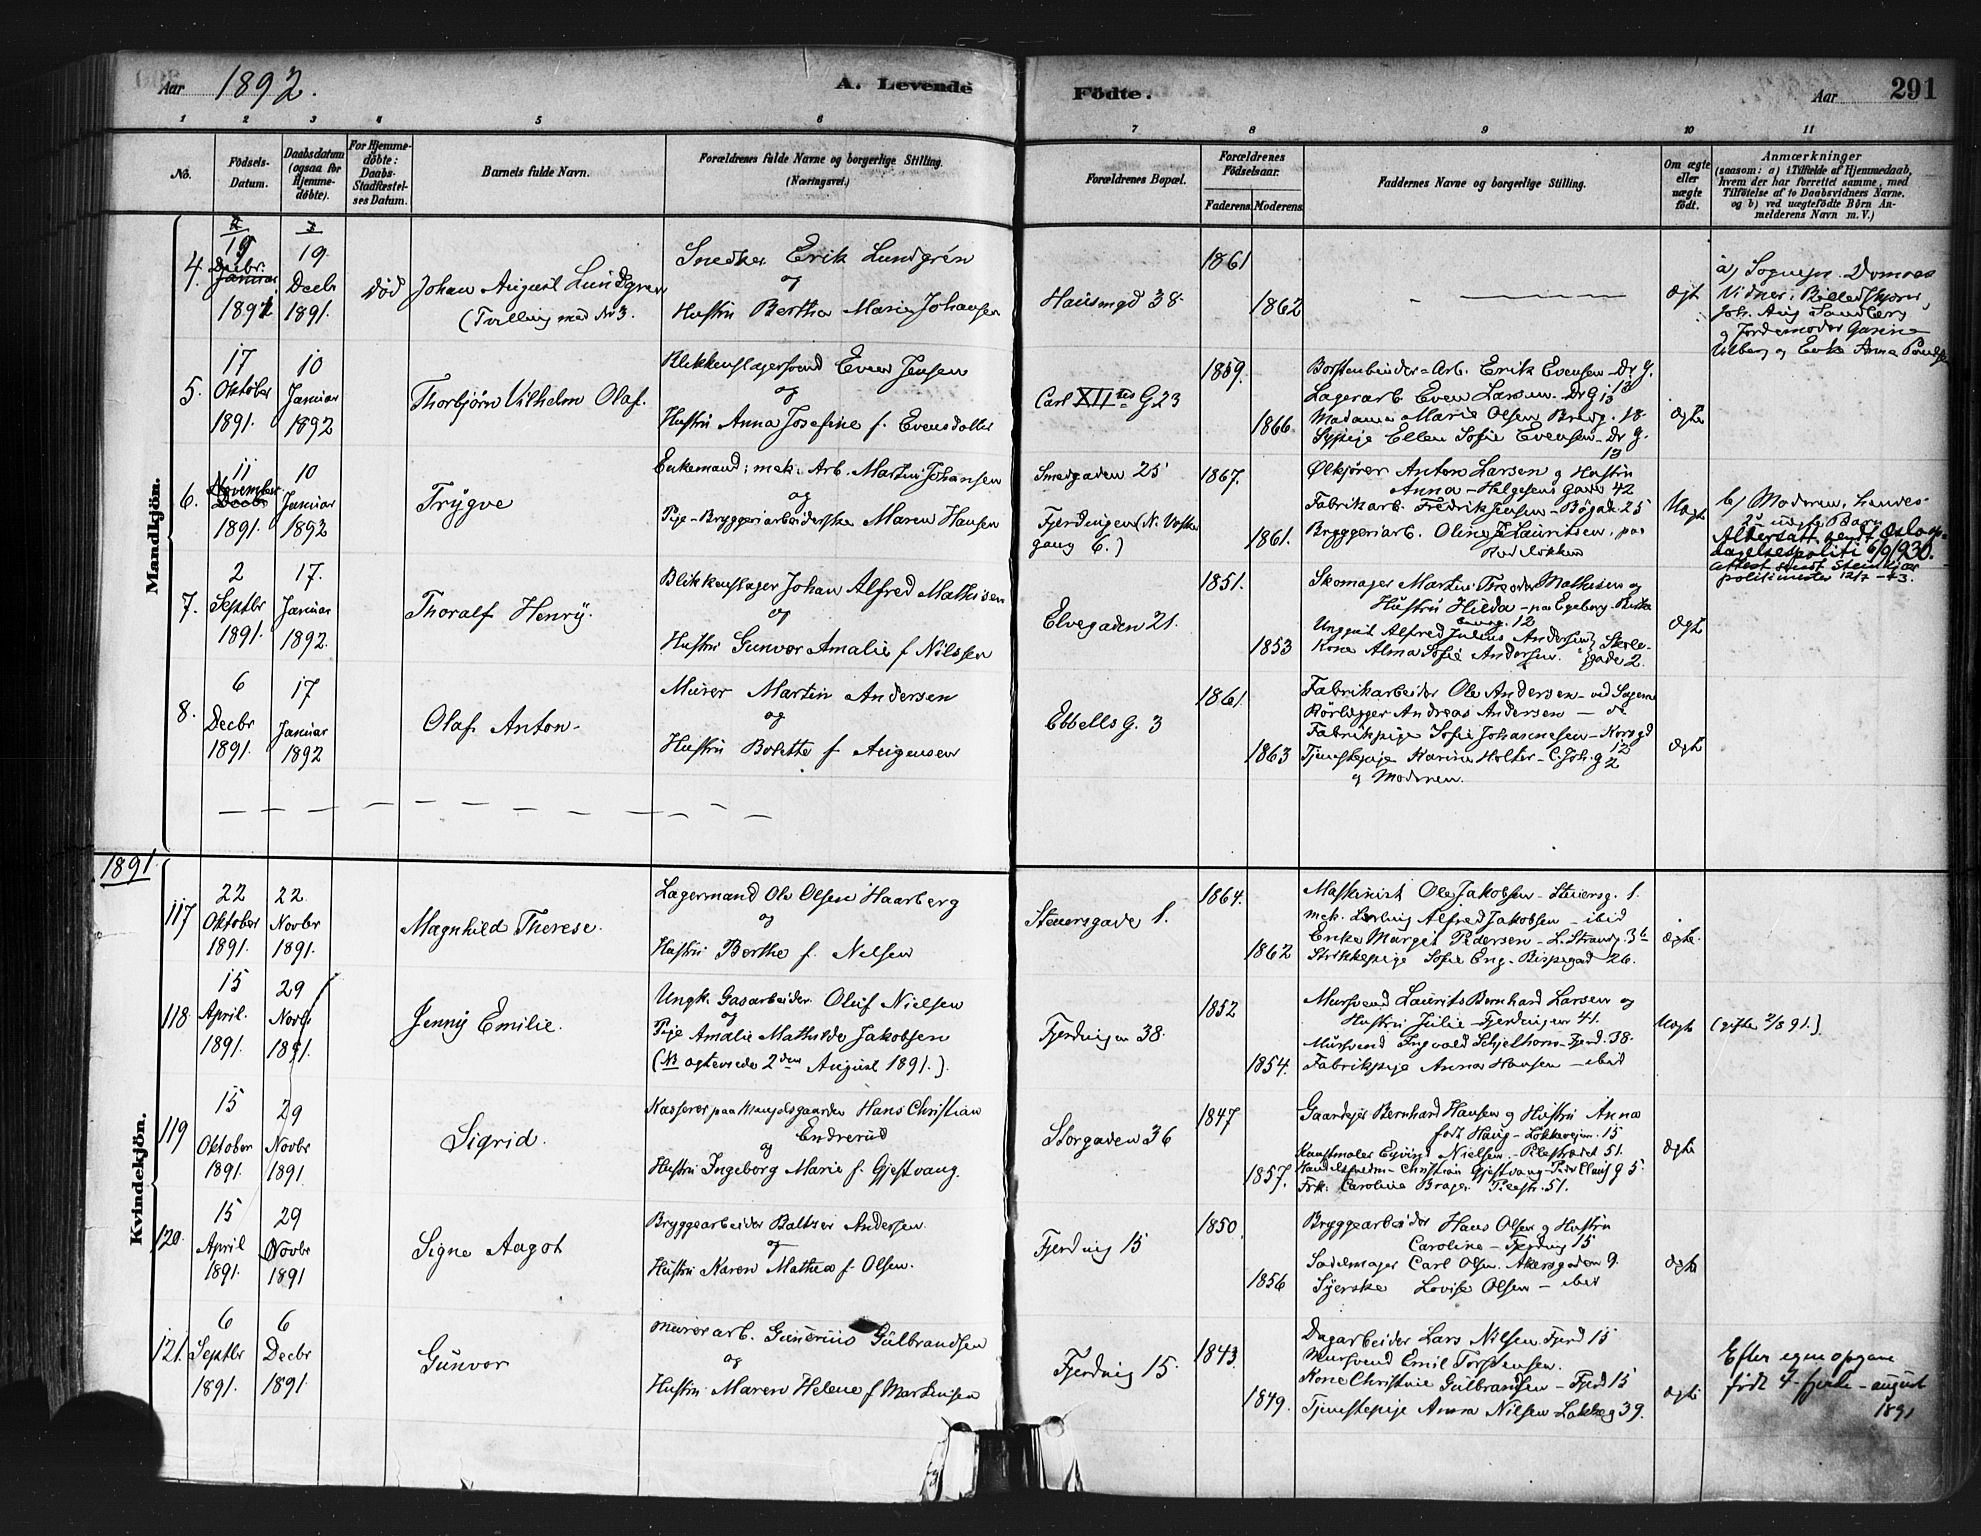 Aar 1892.
A. Levende
Födte.
Aar
291
1 2 3 4 5 6 7 8 9 10 11
No.
Födsels-Datum.
Daabsdatum (ogsaa for Hjemme-döbte).
For Hjemme-döbte: Daabs-Stadfæstel-ses Datum.
Barnets fulde Navn.
Forældrenes fulde Navne og borgerlige Stilling.
(Næringsvei.)
Forældrenes Bopæl.
Forældrenes Födselsaar.
Faderens. Moderens.
Faddernes Navne og borgerlige Stilling.
Om ægte eller uægte födt.
Anmærkninger
(saasom: a) i Tilfælde af Hjemmedaab,
hvem der har forrettet samme, med
Tilföielse af to Daabsvidners Navne.
og b) ved uægtefödte Börn An-
melderens Navn m. V.)
Mandkjön.
4.
19 Decbr. 1891
19. Decbr 1891.
Död
Johan August Lundgren
(Tvilling med No 3.
Snedker Erik Lundgrén
og
Hustru Bertha Marie Johansen
Hausmgd 38.
1861
1862
ægt
a) Sognepr.
Joh. Aug Sandberg
5.
17 Oktober 1891.
10 Januar 1892
Thorbjørn Vilhelm Olaf.
Blikkenslagersvend Even Jensen
og
Hustru Anna Josefine f. Evensdatter
Carl XII tes G 23
1859.
1866.
Børstenbinder-Arb. Erik Evensen - Dr G.
13
Lagerarb Even Larsen - Dr G 13
Madame Marie Olsen Bredg. 18.
Sypige Ellen Sofie Evensen - Dr G.
13
ægte
6.
11 November 1891.
10 Januar 1892
Trygve
Enkemand; mek. Arb. Martin Johansen
og
Pige - Bryggeriarbeiderske Maren Hansen
Smedgaden 25
Fjerdingen (N. Vaske
gang 6.)
1867.
1861.
Ølkjører Anton Larsen og Hustru
Anna - Helgesens Gade 42
Fabrikarb. Fredrik Jensen - Bøgade 25
Bryggeriarb. Oline Lauritsen, paa
Rodeløkken
Uægte
b) Moderen, hendes
2det uægte Barn
Altersatt. sendt Oslo op-
dagelsespoliti 6/9 1930.
Attest sendt Steinkjær
politimester 12/7 - 43.
7.
2 Septbr 1891.
17. Januar 1892.
Thoralf Henry.
Blikkenslager Johan Alfred Mathisen
og
Hustru Gunvor Amalie f Nilssen
Elvegaden 21.
1851.
1853
Skomager Martin Theodor Mathisen og
Hustru Hilda - paa Egeberg
12
Unggut Alfred Julius Andersen
Kone Alma Sofie Andersen.
gade 2.
ægte
8.
6 Decbr 1891.
17 Januar 1892
Olaf Anton -
Murer Martin Andersen
og
Hustru Bolette f Augensen
Ebbells G. 3
1861.
1863
Fabrikarbeider Ole Andersen - ved Sagene
Rörlægger Andreas Andersen - do
Fabrikpige Sofie Johannesen - Korsgd
12
Tjenestepige Karina Holter - C. Joh. G 2
og Moderen.
ægte
1891.
Kvindekjön.
117
22 Oktober 1891.
22. Novbr 1891.
Magnhild Therese.
Lagermand Ole Olsen Haarberg
og
Hustru Berthe f. Nelsen
Steensgade 1.
1864.
1862
Maskinist Ole Jakobsen - Steensg. 1.
mek. Lærling Alfred Jakobsen - ibid
Enke Margit Pedersen - L. Strandg. 36
Strikkepige Sofie Eng - Bispegad 26.
ægte.
118.
15 April. 1891.
29 Novbr 1891.
Jenny Emilie.
Ungk. Gasarbeider Oluf Nielsen
og
Pige Amalie Mathilde Jakobsen
(NB ægteviede 2den August 1891.)
Fjerdingen 38.
1852
1854.
Mursvend Laurits Bernhard Larsen og
Hustru Julie - Fjerdingen 41.
Mursvend Ingvald Schjelhorn - Fjerd. 38.
Fabrikpige Anna Hansen - ibid
Uægte
(gifte 2/8 91.)
119
15 Oktober 1891.
29 Novbr 1891
Sigrid.
Kasserer paa Mangelsgaarden Hans Christian
og Endrerud
Hustru Ingeborg Marie f. Gjestvang.
Storgaden 36
1847
1857.
Gaardejer Bernhard Hansen og Hustru Anna
født Haug - Løkkevejen. 15
Kunstmaler Eyvind Nielsen - Pilestrædet 51.
Handelsfuldm. Christian Gjestvang - Peder Claus G 5.
Frk. Caroline Brager Pilestr. 51.
ægte
120.
15 April 1891.
29 Novbr 1891
Signe Aagot
Bryggearbeider Baltzer Andersen.
og
Hustru Karen Mathea f. Olsen.
Fjerding 15
1850.
1856
Bryggearbeider Hans Olsen og Hustru
Caroline - Fjerding 15
Sadelmager Carl Olsen. Akersgaden 9.
Syerske Lovise Olsen - ibid
ægte
121.
6 Septbr 1891.
6 Decbr 1891.
Gunvor
Murerarb. Gunerius Gulbrandsen
og
Hustru Maren Helene f Martinsen
Fjerding 15.
1843.
1849.
Dagarbeider Lars Nilsen Fjerd 15
Mursvend Emil Torstensen.
Kone Christine Gulbrandsen - Fjerd 15
Tjenestepige Anna Nilsen Løkkeg 39.
ægte
Efter egen opgave
født 4 - fjerde - august
1891